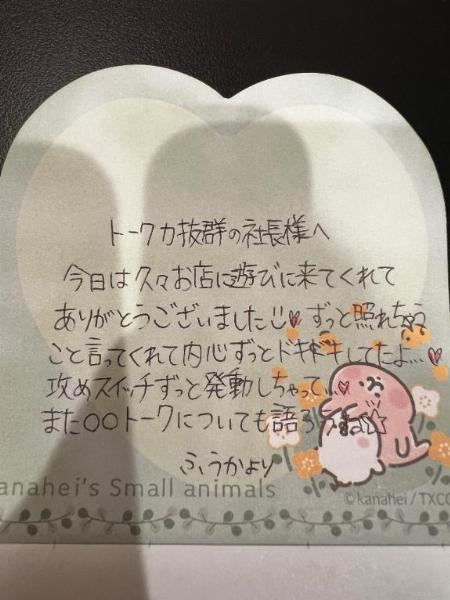 トーク力抜群の社長様へ
今日は久々お店に遊びに来てくれて
ありがとうございました ずっと照れちゃう
こと言ってくれて内心ずっとドキドキしてたよ...
攻めスイッチずっと発動しちゃって...
また○○トークについても語ろうね☆
ふうかより
anahei's Small animals
©kanahei/TXCO